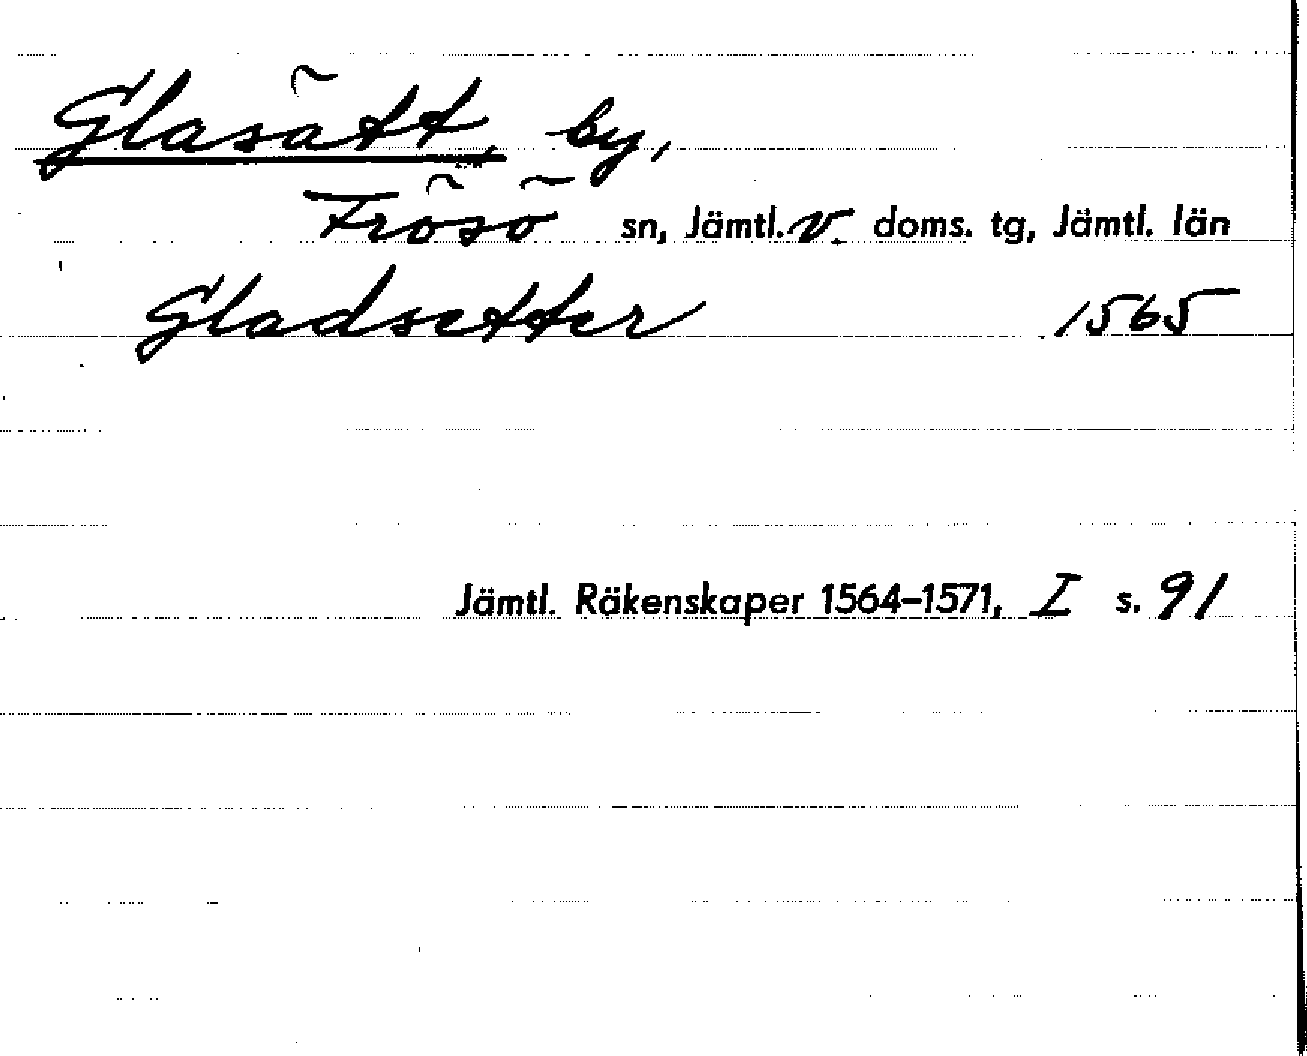 Glasätt, by,
Frösö sn, Jämtl. v. doms. tg, Jämtl. län
Gladsetter 1565
Jämtl. Räkenskaper 1564-1571, I s. 91